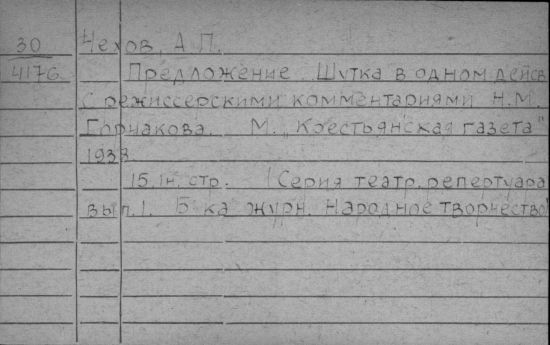 30 Чехов, А.П.
4176 Предложение. Шутка в одном дейсв.
С режиссерскими комментариями Н.М.
Горчакова. М. "Крестьянская газета"
1938
15, 1н. стр. (Серия театр. репертуара
вып. 1. Б-ка журн. Народное творчество)